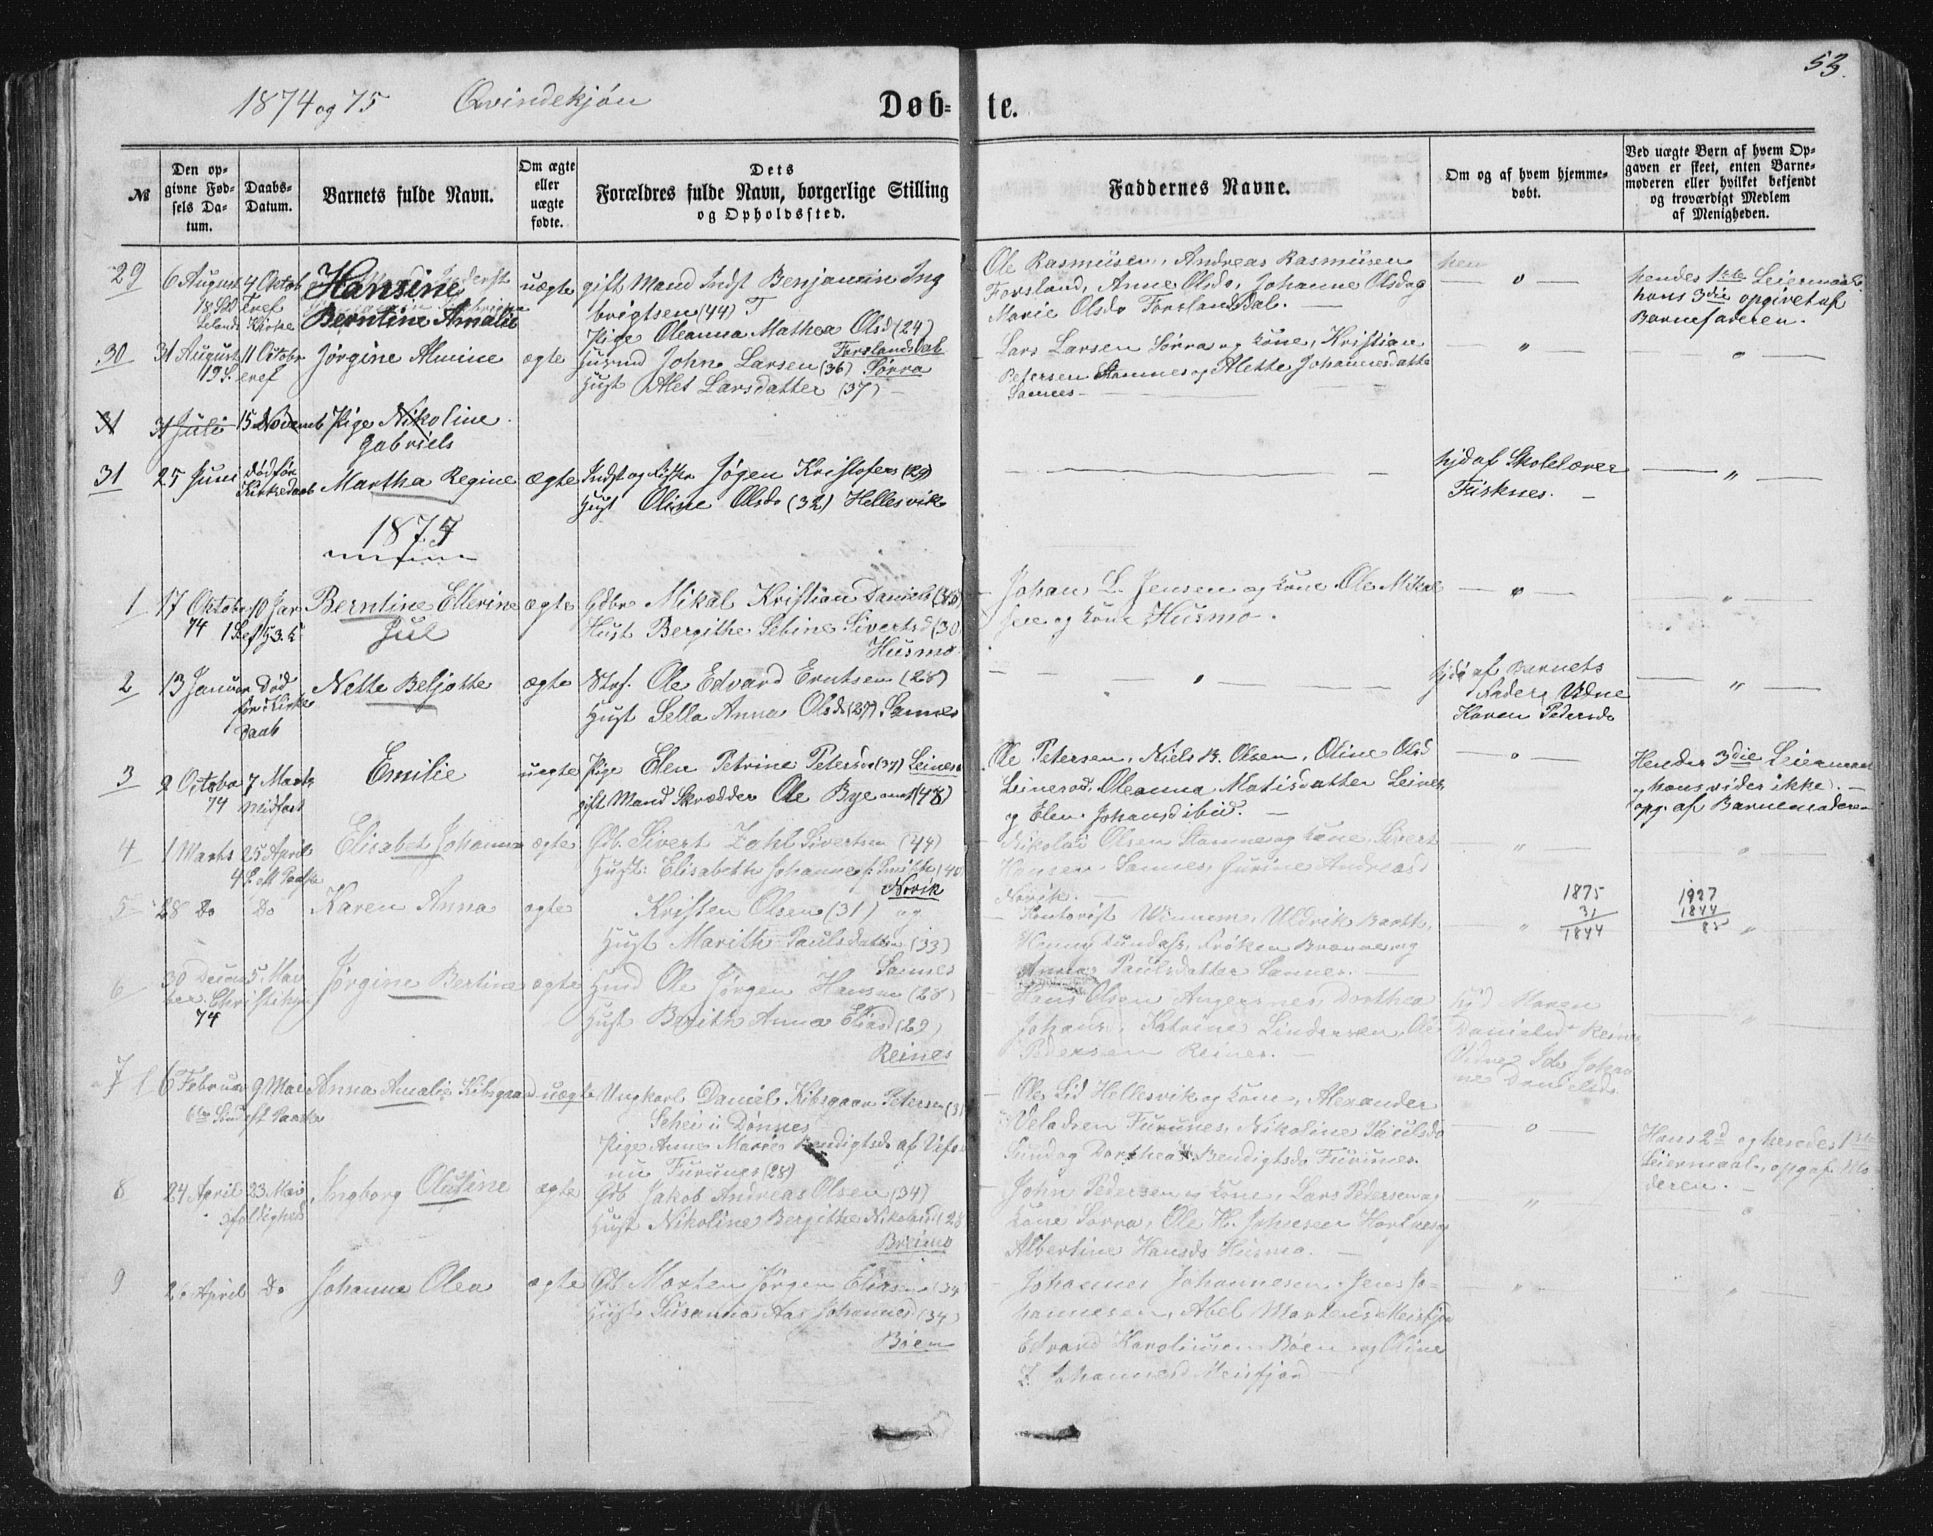 53.
1874 og 75 Qvindekjön
Døb-te.
№
Den op-
givne Fød-
sels Da-
tum.
Daabs-
Datum.
Barnets fulde Navn.
Om ægte
eller
uægte
fødte.
Dets
Forældres fulde Navn, borgerlige Stilling
og Opholdssted.
Faddernes Navne.
Om og af hvem hjemme-
døbt.
Ved uægte Børn af hvem Op-
gaven er skeet, enten Barne-
moderen eller hvilket bekjendt
og troværdigt Medlem
af Menigheden.
29 6 August 4 Oktob Hansine uægte gift Mand Indst Benjamin Ing
18 Sd Tref
Kirke Berntine Amalie
brigtsen (44) T
Pige Oleanna Mathea Olsd (24)
Forslandsdal
Ole Rasmusen, Andreas Rasmusen
Forsland, Anne Olsd, Johanne Olsdag
Marie Olsd Forslandsdal.
hendes 1ste Leiermaal
hans 3die opgivet af
Barnefaderen.
30 31 August 11 Octobr Jørgine Almine ægte Husmd John Larsen (36) Sørra
19 S. eref
Hust Alet Larsdatter (37)
Lars Larsen Sørra og Kone, Kristian
Petersen Stamnes og Alette Johannesdatte
Sannes
31 31 Juli 15 Novemb Pige Nikoline
Gabriels
31 25 Juni død før
Kirkedaab Martha Regine ægte Indst og Fisker Jøgen Kristofers (29)
Hust Oline Olsd (32) Hellesvik
hjd af Skolelærer
Fisknes.
1875
1 17 Oktobr 10 Jan Berntine Ellerine ægte Gdbr Mikal Kristian Daniels (38)
74 Jul
Hust Bergithe Sebine Sivertsd (30
Husmo
Johan L. Jensen og Kone Ole Mikal
sen og Kone Husmo.
2 13 Januar Død
før Kirke
daab Nette Beljotte ægte Ole Edvard Erntsen (28)
Hust Sella Anna Olsd (27) Sannes
hjdø af Barnets
Fader, Vidne
Karen Pedersd
3 9 Octobr 7 Marts Emilie uægte Pige Elen Petrine Petersd (37) Leines
74 Midfast
gift Mand Skrædder Ole Bye (48)
Ole Petersen, Niels B. Olsen, Oline Olsd
Leinesod, Oleanna Matisdatter Leines
og Elen Johansd ibid.
Hendes 3die Leiermaal
hans vides ikke.
opg. af Barnemoderen
4 1 Marts 25 April Elisabet Johanna ægte Gdb. Sivert Zahl Sivertsen (44)
4 S. eft Paaske
Hust: Elisabeth Johanne f. (40
Norvik
Nikolai Olsen Stamnes og Kone, Sivert
Hansen Sannes, Jurine Andreasd
Norvik.
5 28 Do Do Karen Anna ægte Kristen Olsen (31) og
Hust Marith Paulsdatter (33)
Sannes
Kontorist Winnem, Uldrik Baatt,
Anna Paulsdatter Sannes.
1875
31
1844
1927
1844
85
6 30 Decem 5 Mai Jørgine Bertine ægte Husmd Ole Jørgen Hansen (28)
ber Chri Sti
74
Hust Berith Anna Eliasd (29)
Reines
Hans Olsen Angersnes, Dorthea
Johans, Katrine Lindersen, Ole
Pedersen Reines.
hjd Maren
Danielsd Reines
Vidne Ida Johan
ne Danielsd
7 6 Februar 9 Mai Anna Amalie Kibsgaard uægte Ungkarl Daniel Kibsgaard Petersen (31
6te Sönd eft Paaske
Schei i Dønnes
Pige Anne Marie Bendigtsd af Vefsn
nu Furunes (28)
Ole Lid Hellesvik og Kone, Alexander
Veladsen Furunes, Nikoline Paulsd
Sund og Dorthea Bendigtsd Furunes.
Hans 2d og hendes 1ste
Leiermaal, opg af Mo
deren.
8 24 April 23 Mai Ingborg Olufine ægte Gdb Jakob Andreas Olsen (34)
3foldighed
Hust Nikoline Bergithe Nikolaisd (28
Breimo
John Pedersen og Kone, Lars Pedersen og
Kone Sorra, Ole H. Johnsen Hortnes og
Albertine Hansd Husmo.
9 26 April Do Johanna Olea ægte Gdb Morten Jørgen Eliasen (34
Hust Susanna Aas Johannesd (34)
Bøen
Johannes Johannesen, Jens Jo-
hannesen, Abel Mortensd Meisfjor
Edvard Karoliusen Bøen og Oline
Z. Johannesd Meisfjord